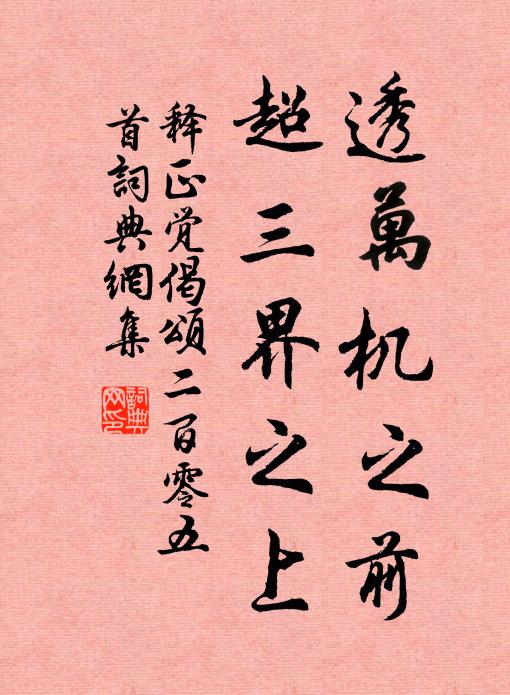 透萬机之前
超三界之上
释正觉偈頌二百零五
首詞典網集
詞典
网印